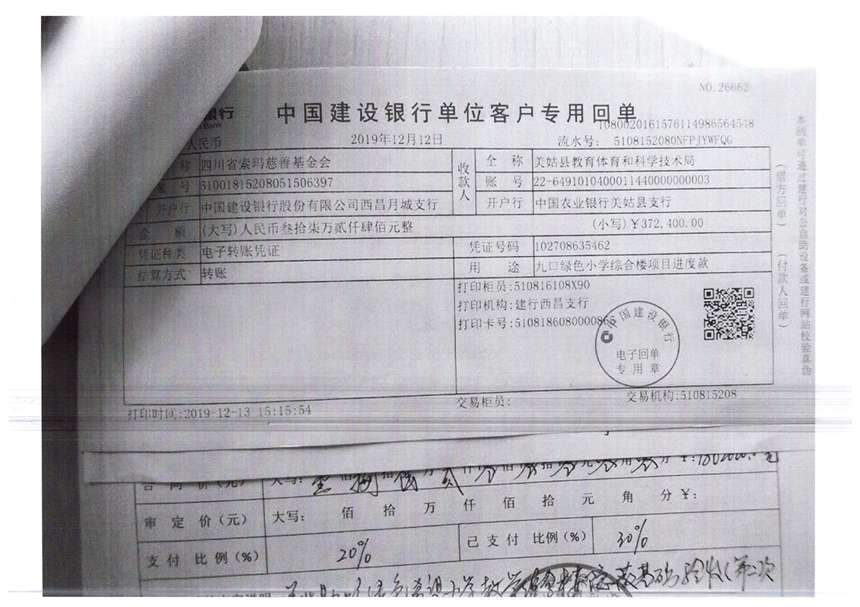 NO.26662
银行 中国建设银行单位客户专用回单
1080020161576114986564548
人民币 2019年12月12日 流水号: 5108152080NFPJYWFQG
称 四川省索玛慈善基金会 收款人 全 称 美姑县教育体育和科学技术局
号 51001815208051506397 账 号 22-649101040001144000000003
开户行 中国建设银行股份有限公司西昌月城支行 开户行 中国农业银行美姑县支行
金 额 (大写)人民币叁拾柒万贰仟肆佰元整 (小写)¥372,400.00
凭证种类 电子转账凭证 凭证号码 102708635462
结算方式 转账 用 途 九口绿色小学综合楼项目进度款
打印柜员:510816108X90
打印机构:建行西昌支行
打印卡号:510818608000086
中国建设银行
电子回单
专用章
打印时间:2019-12-13 15:15:54 交易柜员: 交易机构:510815208
本回单可通过建行对公自助设备或建行网站校验真伪
(借方回单)
(付款人回单)
合 同 价(元) 大写:
审 定 价(元) 大写: 佰 拾 万 仟 佰 拾 元 角 分 ¥:
支付 比例(%) 20% 已 支 付 比例(%) 30%